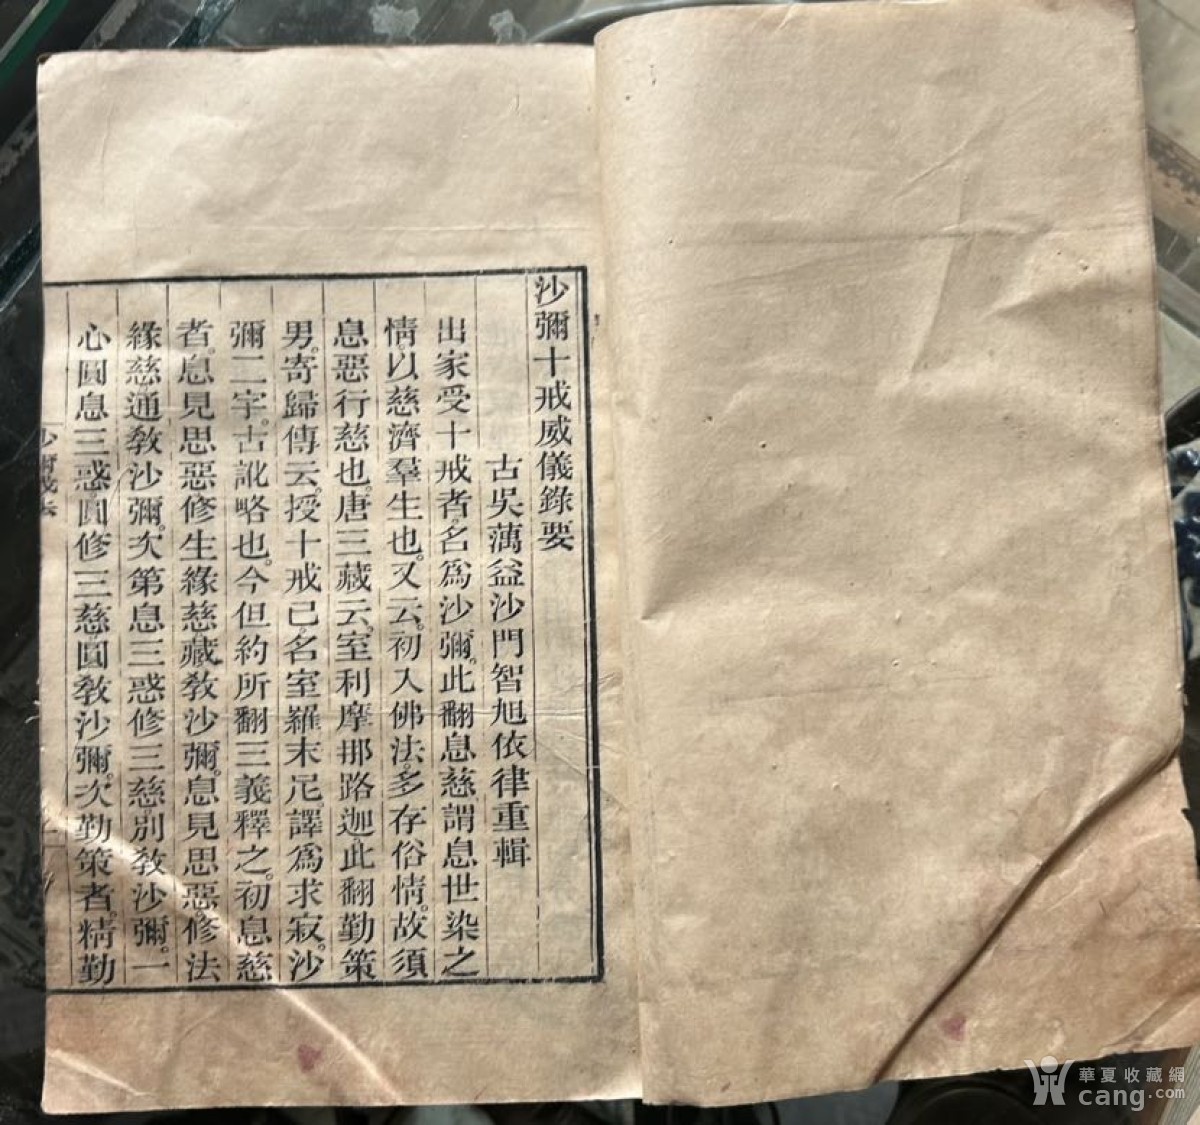 沙彌十戒威儀錄要
古吳蕅益沙門智旭依律重輯
出家受十戒者。名爲沙彌。此翻息慈。謂息世染之
情。以慈濟羣生也。又云。初入佛法。多存俗情。故須
息惡行慈也。唐三藏云。室利摩那路迦。此翻勤策
男。寄歸傳云。授十戒已。名室羅末尼。譯爲求寂。沙
彌二字。古訛略也。今但約所翻三義釋之。初息慈
者。息見思惡。修生緣慈。藏敎沙彌。息見思惡。修法
緣慈。通敎沙彌。次第息三惑。修三慈。別敎沙彌。一
心圓息三惑。圓修三慈。圓敎沙彌。次勤策者。精勤
華夏收藏網
cang.com